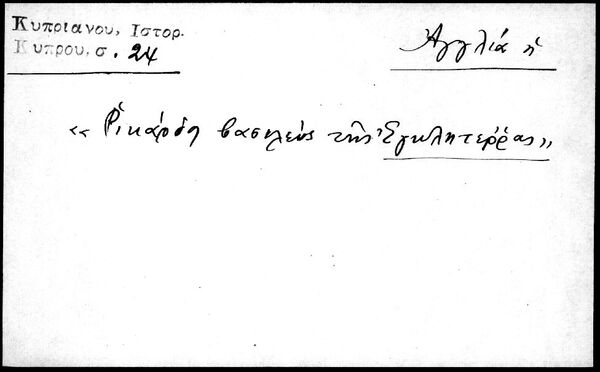 Κυπριανου, Ιστορ.
Κυπρου, σ. 24
Ἀγγλιά ἡ
«Ῥικάρδη βασιλεὺς τῆς Ἐγκλητέῤῥας»